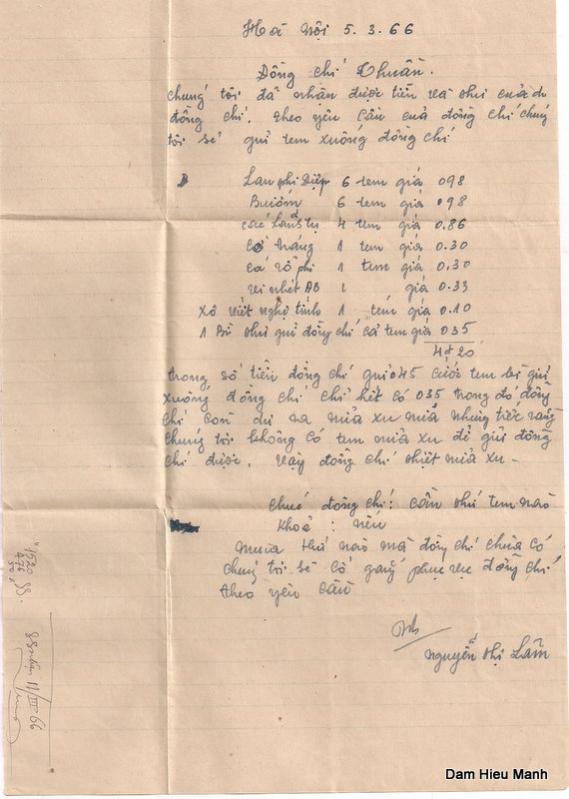 Hà Nội 5.3.66
Đồng chí Thuần.
chúng tôi đã nhận được tiền và thư của
đồng chí. theo yêu cầu của đồng chí chúng
tôi sẽ gửi tem xuống đồng chí
Lan phi Điệp 6 tem giá 098
Bướm 6 tem giá 098
4 tem giá 0.86
1 tem giá 0.30
cá rô phi 1 tem giá 0.30
1 giá 0.33
Xô viết nghệ tĩnh 1 tem giá 0.10
1 Bì thư gửi đồng chí cả tem giá 035
4đ20
trong số tiền đồng chí gửi 045 cước tem để gửi
xuống đồng chí chỉ hết có 035 trong đó đồng
chí còn dư ra mười xu mà nhưng tiếc rằng
chúng tôi không có tem mười xu để gửi đồng
chí được. vậy đồng chí thiệt mười xu -
chúc đồng chí: cần thứ tem nào
khoẻ: nếu
mua thứ nào mà đồng chí chưa có
chúng tôi sẽ cố gắng phục vụ đồng chí
theo yêu cầu
nguyễn thị Lâm
11/III 66
Dam Hieu Manh